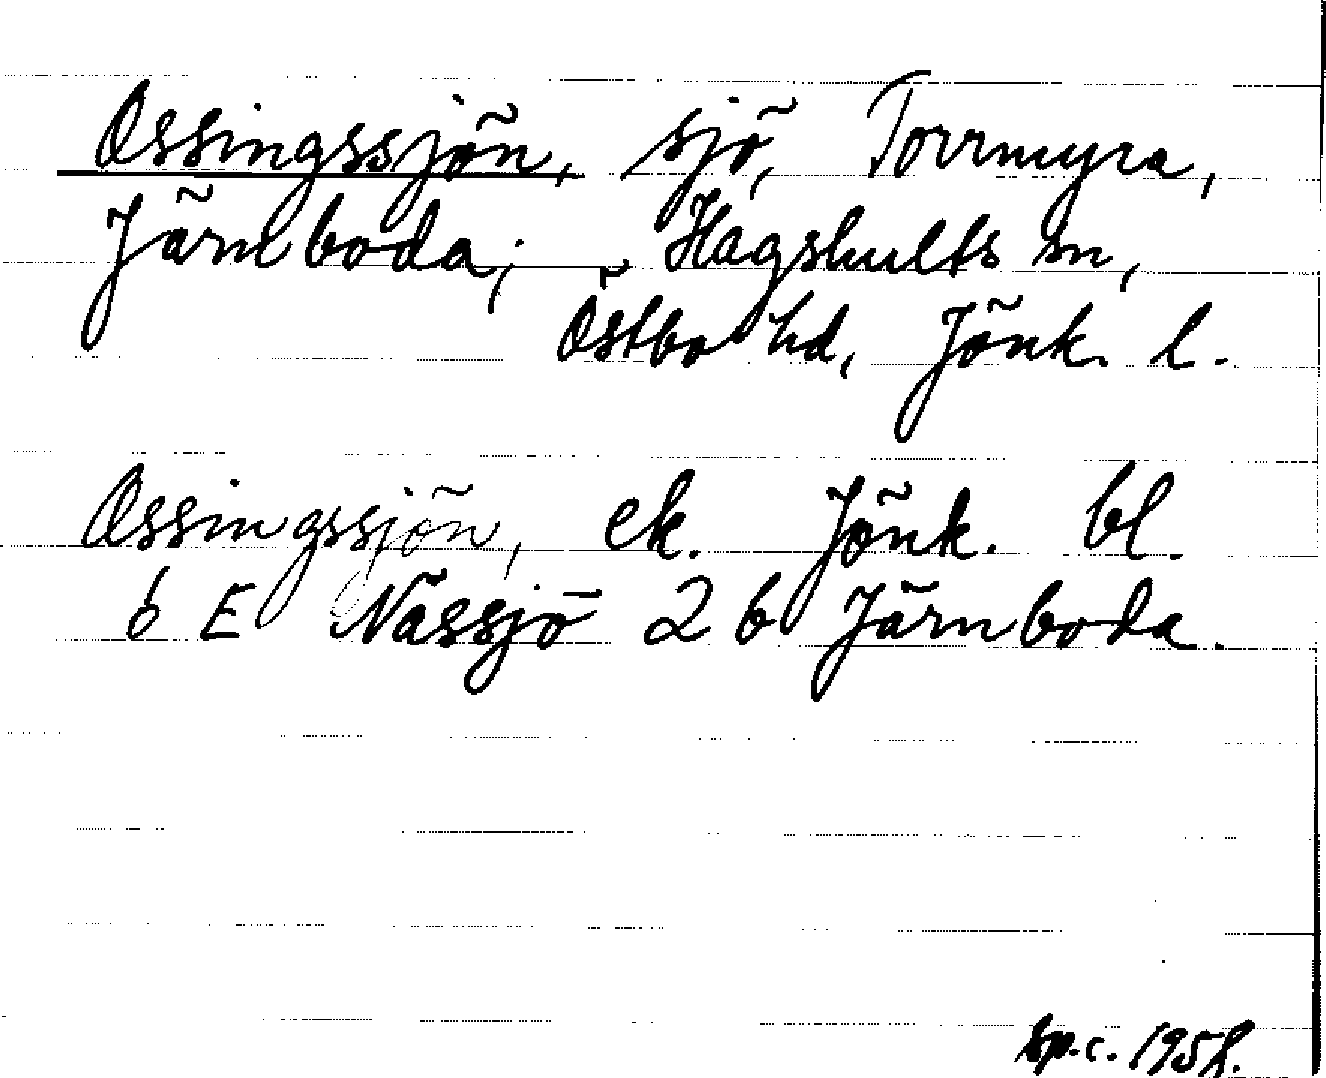 Ossingssjön, sjö, Torrmyra,
Järnboda; Hagshults sn,
Östbo hd, Jönk. l.
Ossingssjön, ek. Jönk. bl.
6 E Nässjö 2 b Järnboda.
sp.c. 1958.